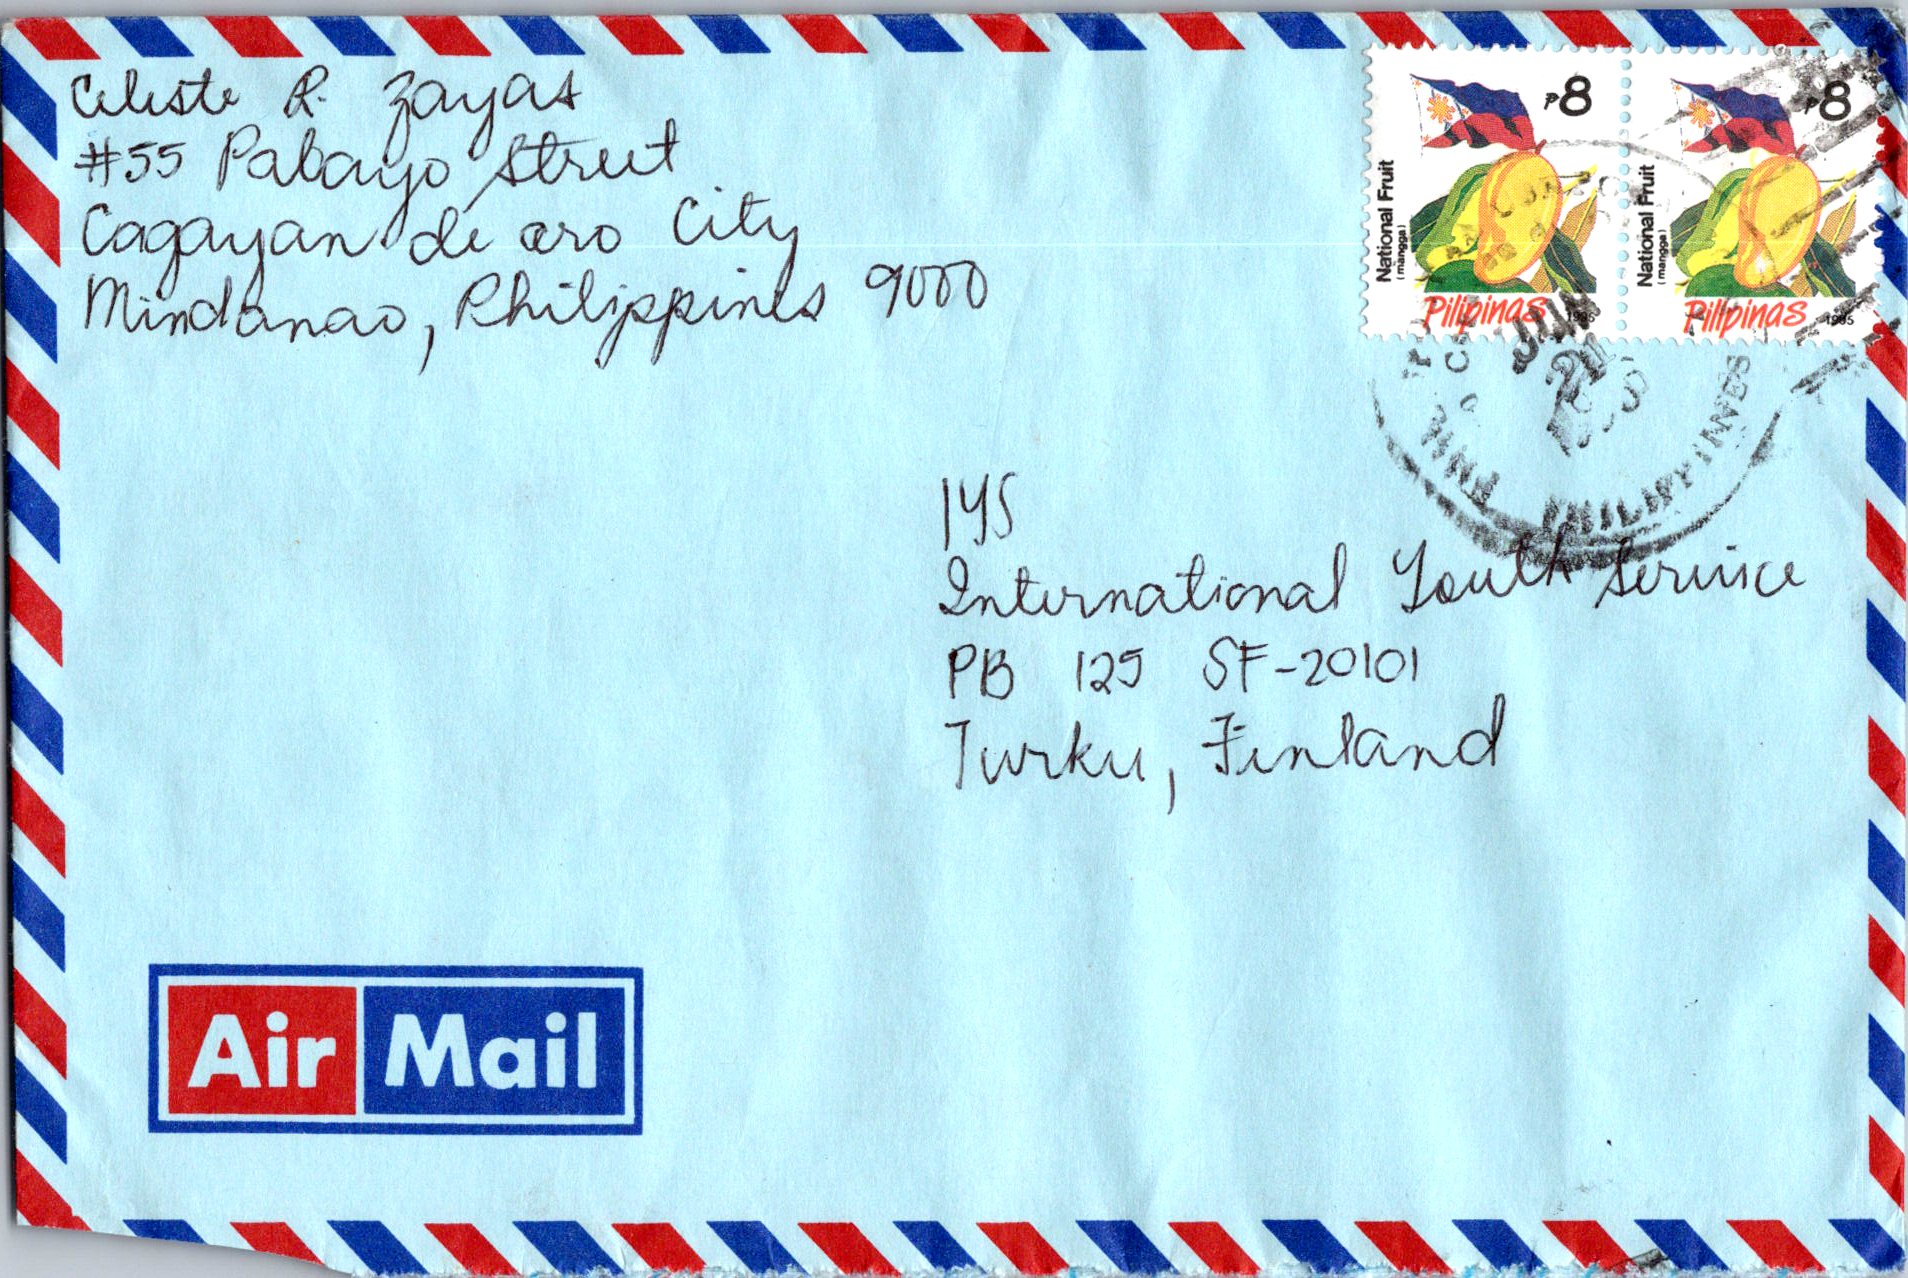 Celeste R. Zayas
#55 Pabayo Street
Cagayan de oro City
Mindanao, Philippines 9000
₱8
National Fruit
(mangga)
Pilipinas
1995
₱8
National Fruit
(mangga)
Pilipinas
1995
JUN
PHILIPPINES
IYS
International Youth Service
PB 125 SF-20101
Turku, Finland
Air Mail